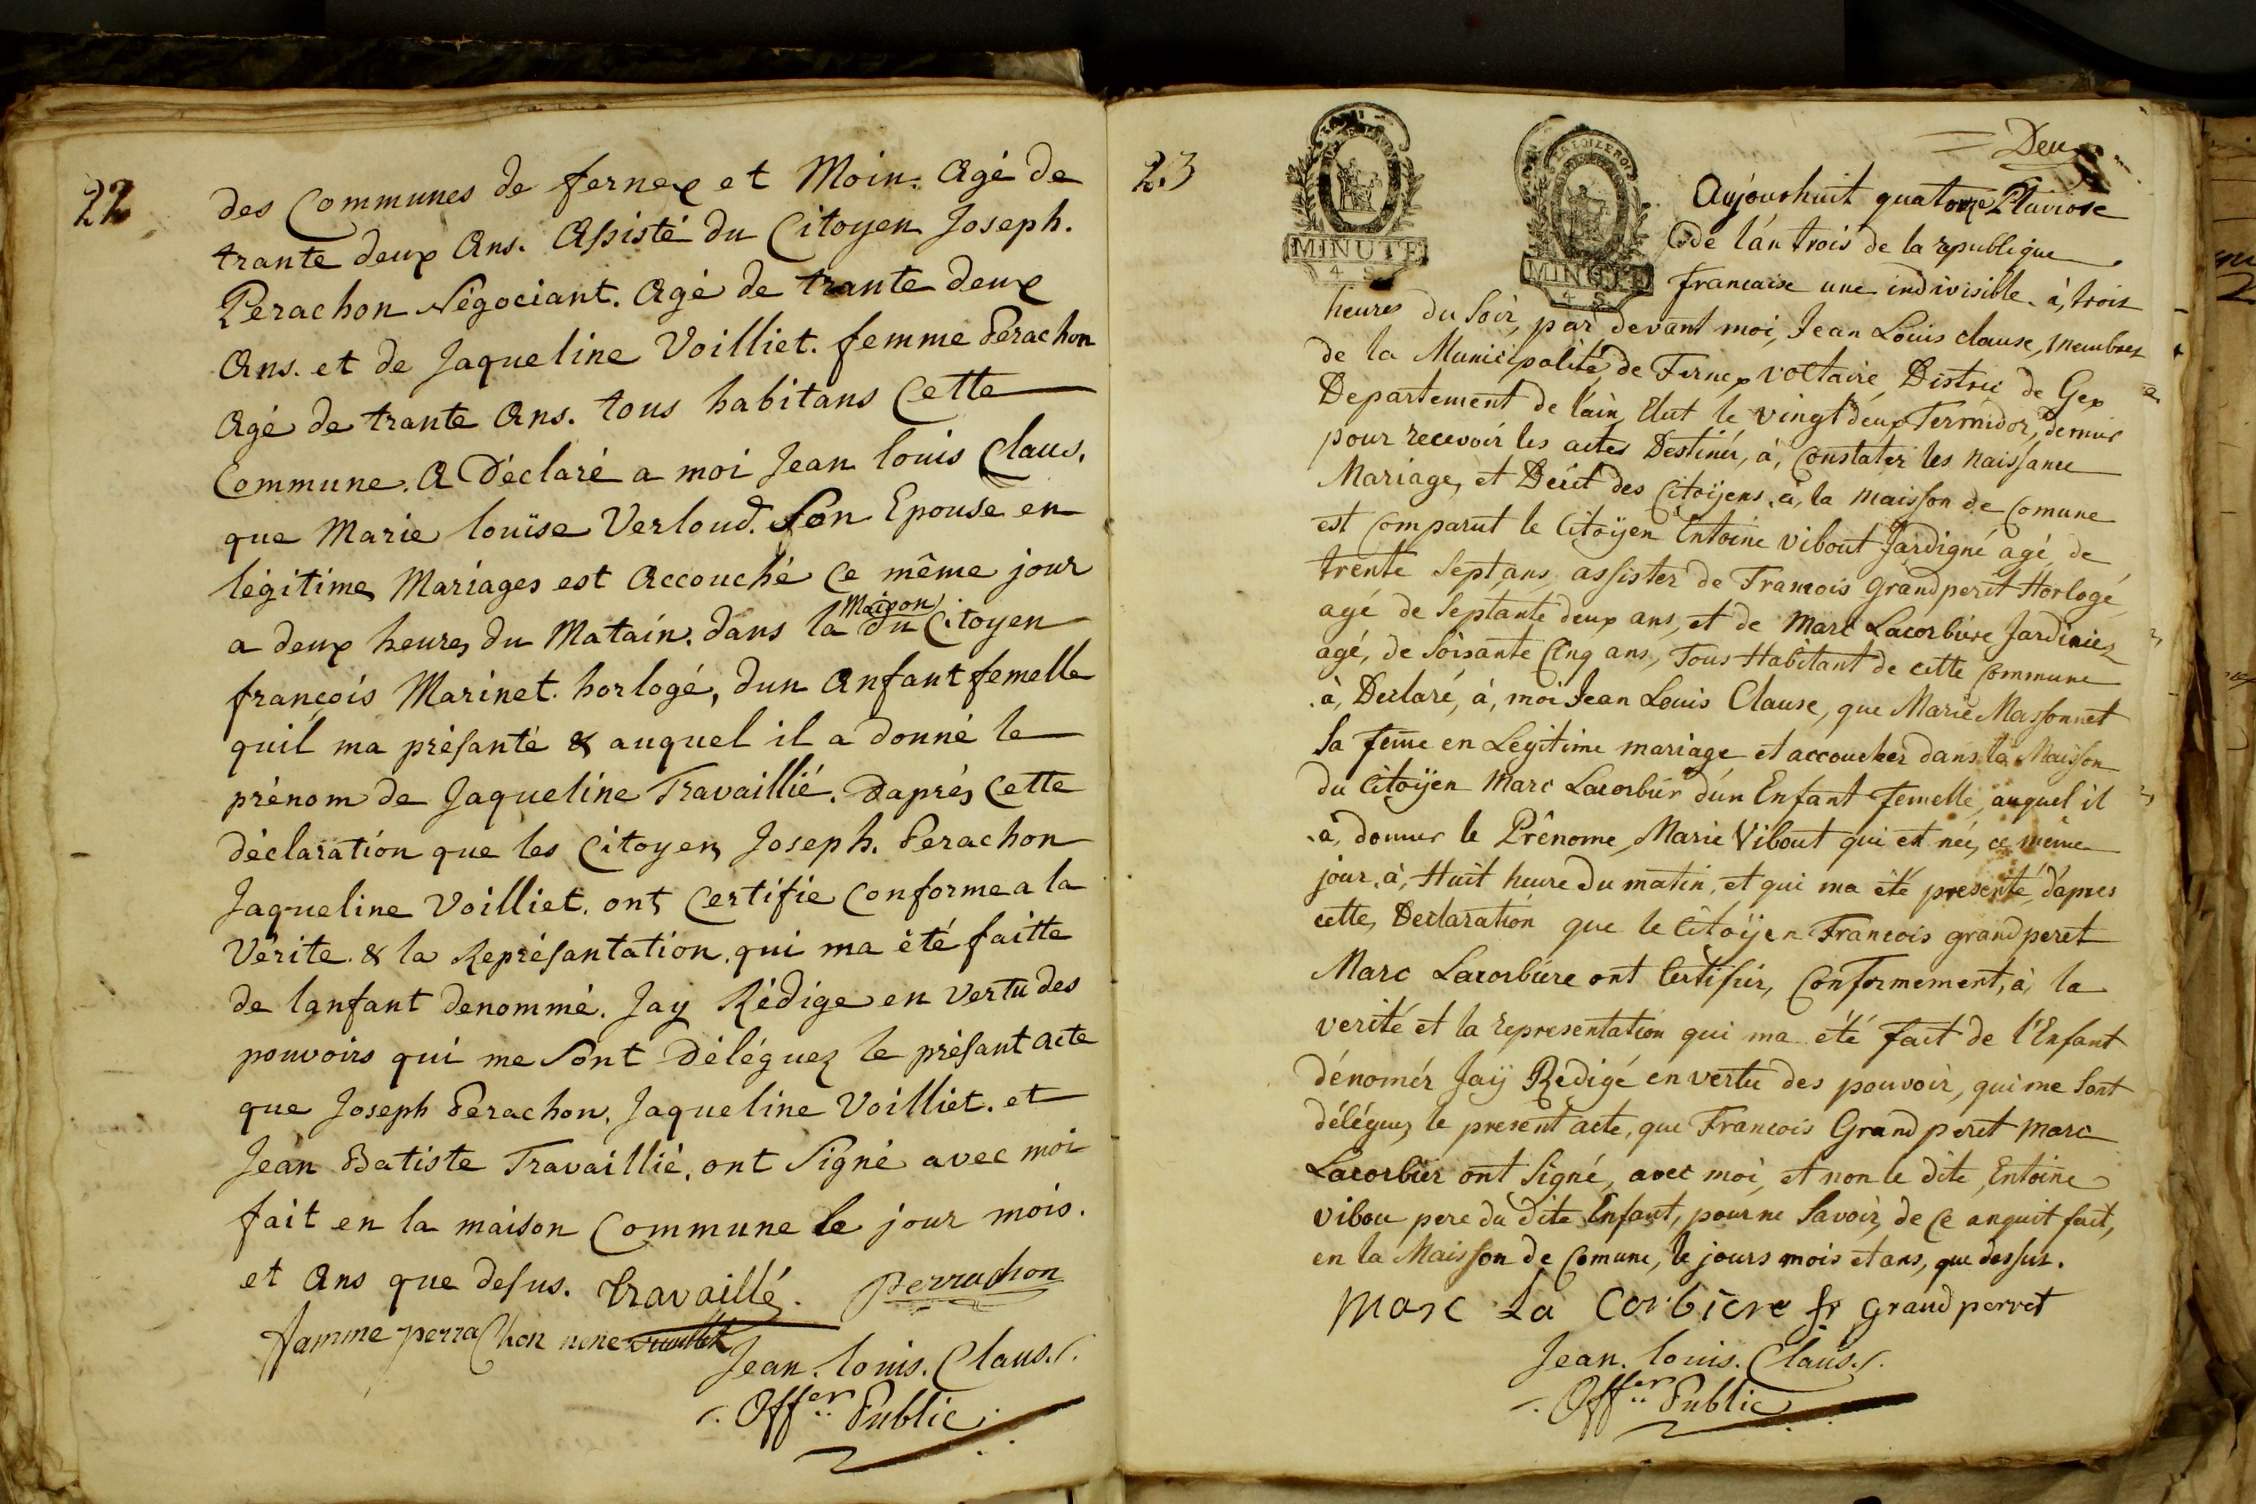 22
des Communes de fernex et Moin. Agé de
trante deux Ans. Assisté du Citoyen Joseph.
Perachon Négociant. Agé de trante deux
Ans. et de Jaqueline Voilliet. femme Perachon
Agé de trante Ans. tous habitans Cette
Commune. A Déclaré a moi Jean louis Claus.
que Marie louise Verloud. Son Epouse en
légitime Mariages est Accouché Ce même jour
a deux heures du Matain. dans la Maison du Citoyen
françois Marinet. horlogé, dun Anfant femelle
quil ma présanté & auquel il a donné le
prénom de Jaqueline Travaillié. Daprés Cette
déclaration que les Citoyen Joseph. Perachon
Jaqueline Voilliet. ont Certifie Conforme a la
Vérite. & la Représantation. qui ma été faitte
de lanfant denommé. Jay Rédige en vertu des
pouvoirs qui me Sont Déléguez le présant acte
que Joseph Perachon. Jaqueline Voilliet. et
Jean Batiste Travaillié. ont Signé avec moi
fait en la maison Commune le jour mois.
et Ans que desus. travaillé. perrachon
famme perrachon nene
Jean. louis. Claus.
Off.er Public
23
MINUTE
4 S
MINUTE
4 S
Deu
Aujourhuit quatorze Pluviose
de l'án trois de la republique
francaise une indivisible. à, trois
heures du Soir, par devant moi, Jean Louis clause, membres
de la Municipalité de Fernex voltaire, Distric de Gex
Departement de l'ain, Elut le vingt deux Termidor, dernier
pour recevoir les actes Destinér, à, Constater les Naissance
Mariage, et Décit des Citoÿens, à, la maisson de Comune
est Comparut le Citoÿen Entoine vibout Jardigné agé de
trente Sept ans, assister de Francois Grandperet Horlogé,
agé de Septante deux ans, et de Marc Lacorbiere Jardinier
agé, de Soisante Cinq ans, Tous Habitant de cette Commune
à, Declaré, à, moi Jean Louis Clause, que Marie Massonnet
Sa feme en Legitime mariage et accoucher dans la Maisson
du Citoÿen Marc Lacorbiér d'ún Enfant femelle, auquel il
à, donner le Prénome, Marie Vibout qui et née, ce même
jour, à, Huit heure du matin, et qui ma été presenté, d'apres
cette, Declaration que le Citoÿen Francois grandperet
Marc Lacorbiere ont Certifiér, Conformement, à, la
verité et la representation qui ma été fait de l'Enfant
dénomér Jaÿ Redigé en vertu des pouvoir, qui me Sont
déléguez le present acte, que Francois Grandperet Marc
Lacorbiér ont Signé, avec moi, et non le dite, Entoine
vibou pere du dite Enfant, pour ne Savoir, de Ce anquit fait,
en la Maisson de Comune, le jours mois et ans, que dessus.
Marc La Corbiere fr grand perret
Jean. louis. Claus.
Off.er Public